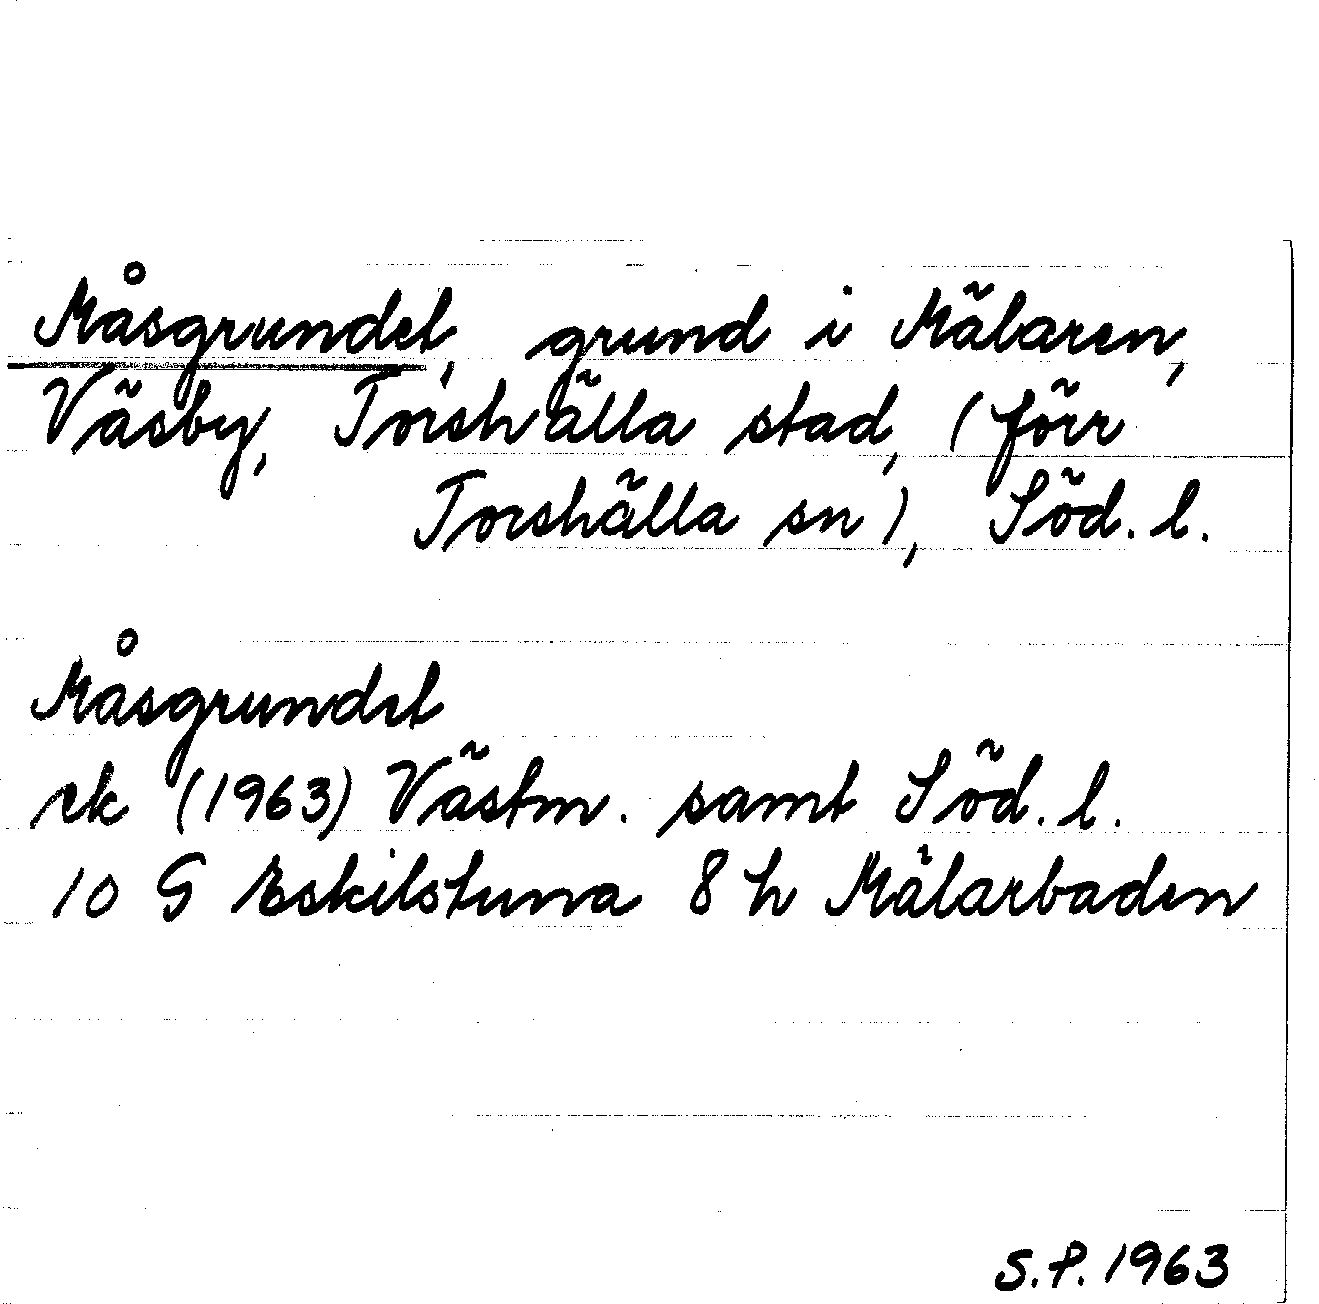 Måsgrundet, grund i Mälaren,
Väsby, Torshälla stad, (förr
Torshälla sn), Söd. l.
Måsgrundet
ek (1963) Västm. samt Söd. l.
10 G Eskilstuna 8 h Mälarbaden
S.P. 1963